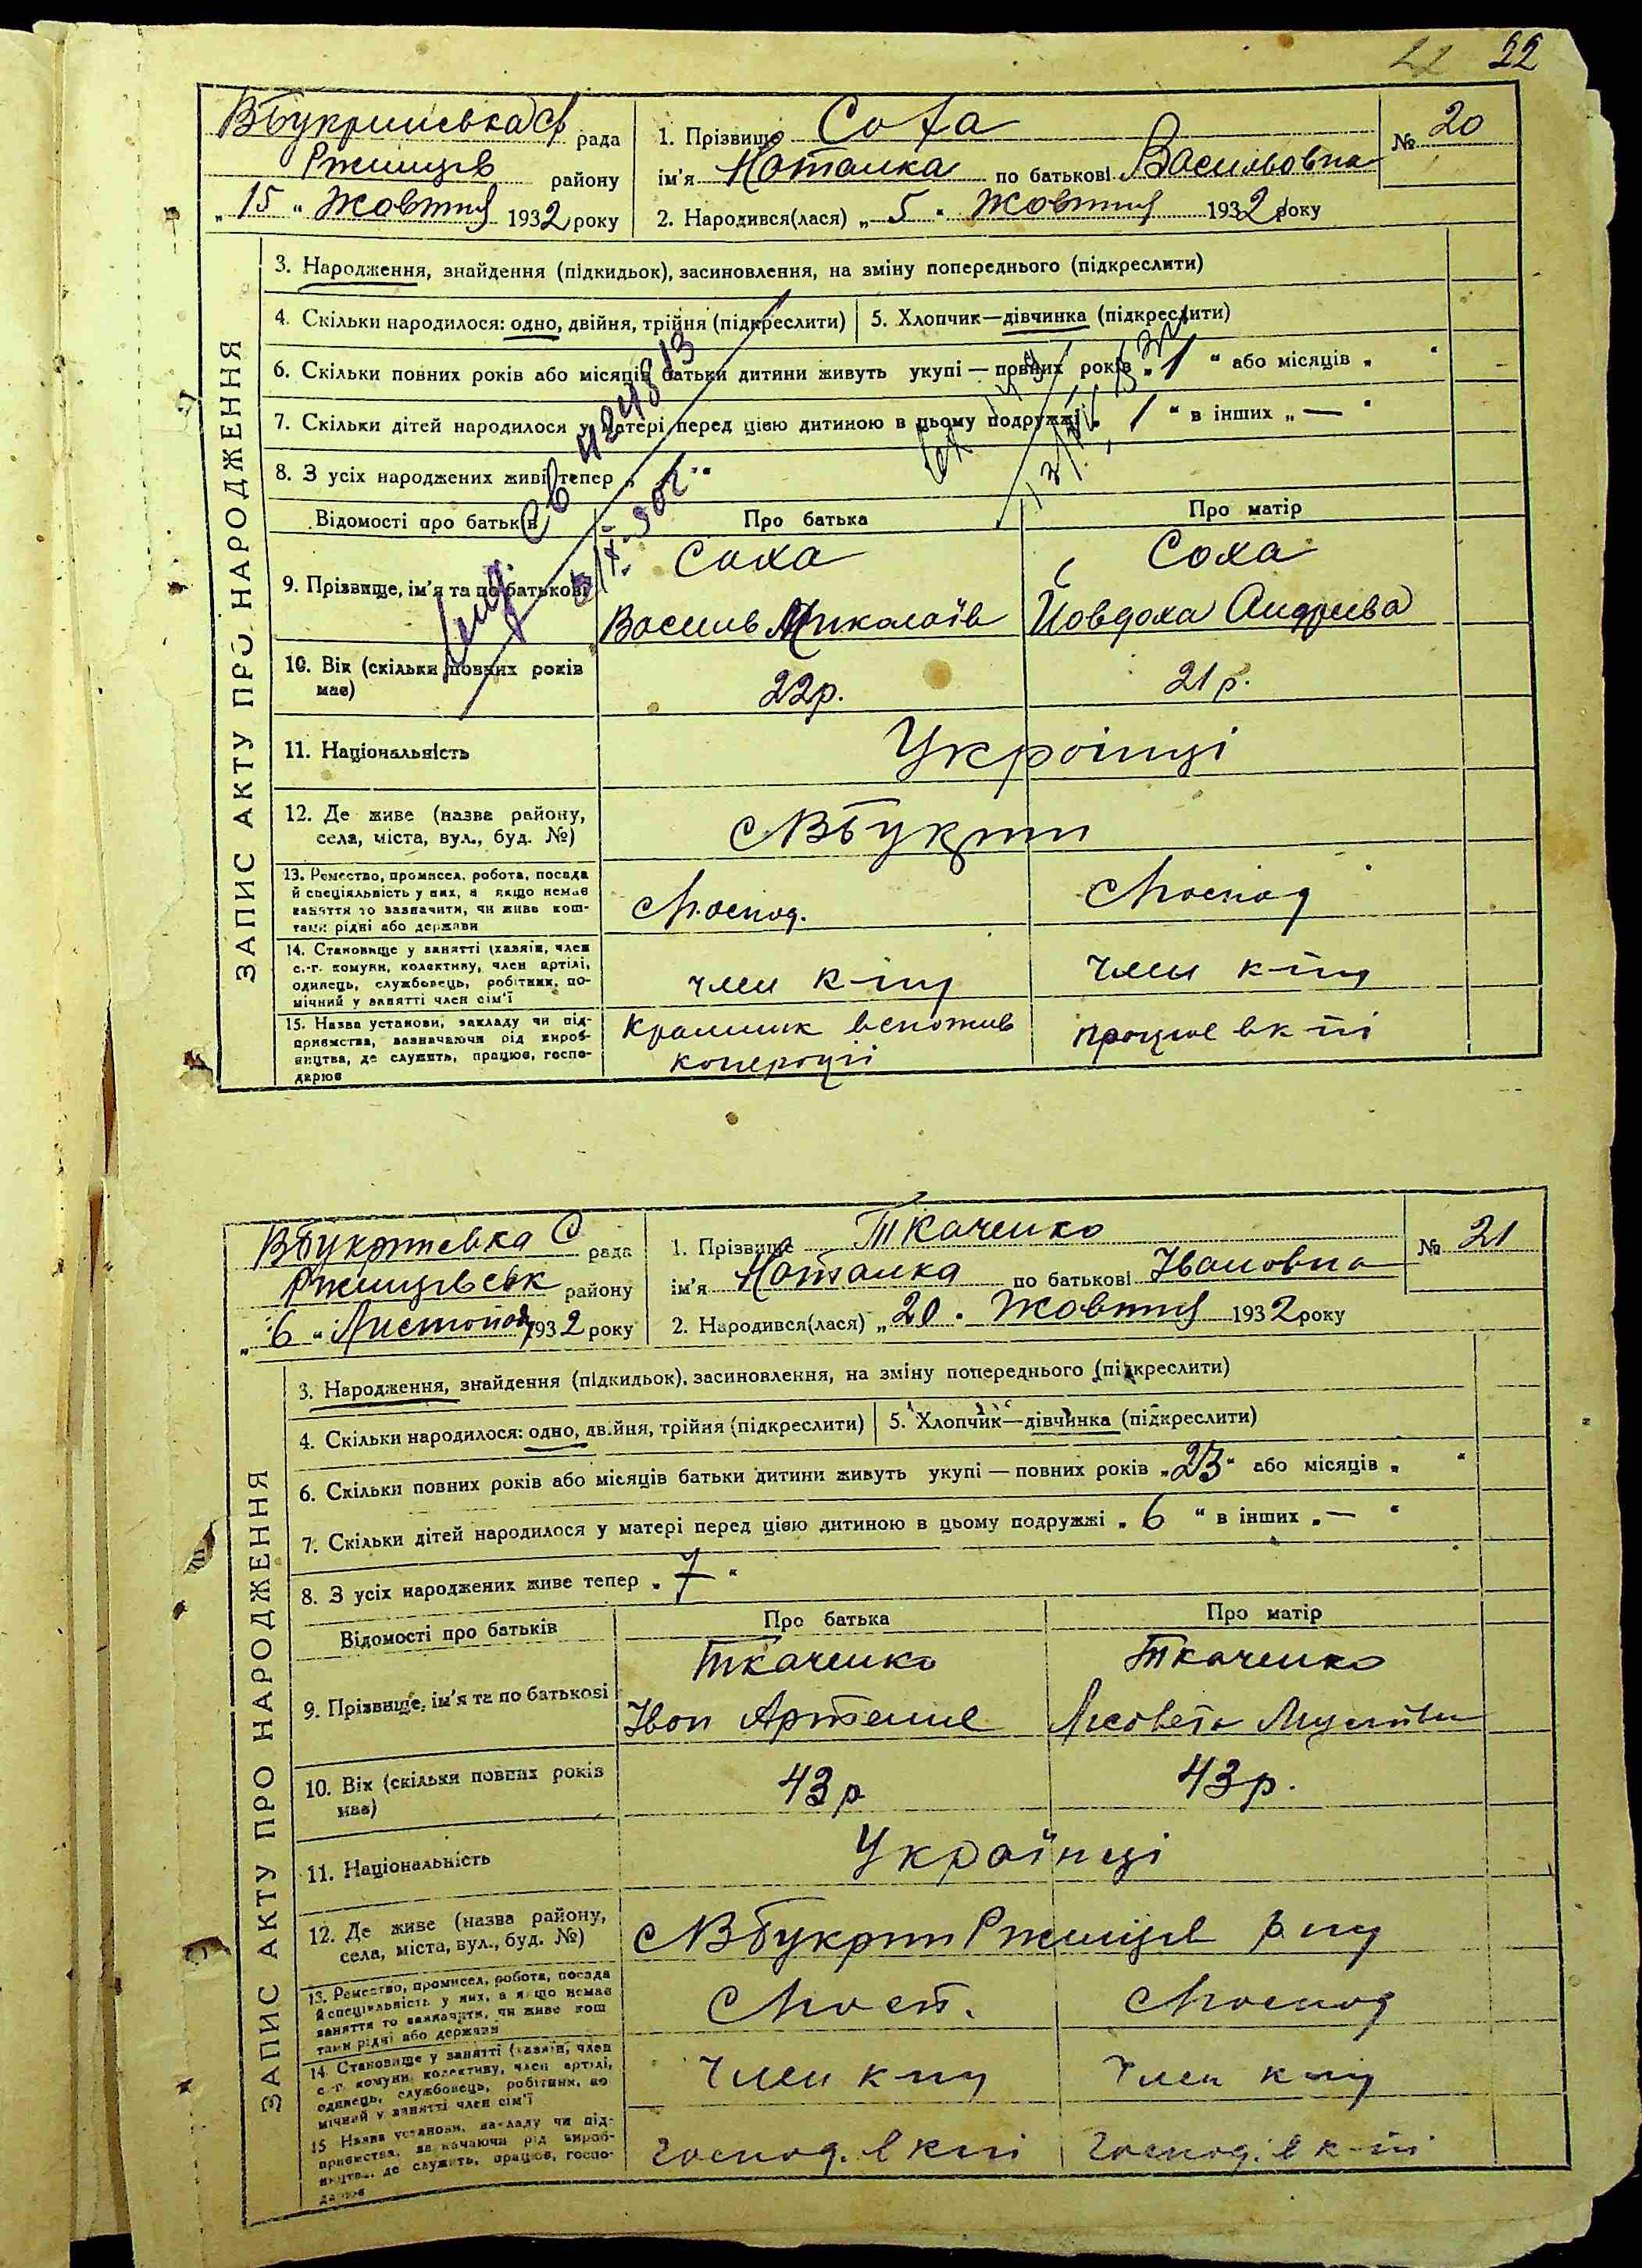 22
ВБукринська с/р рада
Ржищів району
„ 15 " Жовтня 1932 року
1. Прізвище Соха
№ 20
ім'я Наталка по батькові Васильовна
2. Народився(лася) „ 5 " Жовтня 1932 року
ЗАПИС АКТУ ПРО НАРОДЖЕННЯ
3. Народження, знайдення (підкидьок), засиновлення, на зміну попереднього (підкреслити)
4. Скільки народилося: одно, двійня, трійня (підкреслити)
5. Хлопчик—дівчинка (підкреслити)
6. Скільки повних років або місяців батьки дитини живуть укупі — повних років „ 1 " або місяців „ "
7. Скільки дітей народилося у матері перед цією дитиною в цьому подружжі „ 1 " в інших „ — "
8. З усіх народжених живі тепер „ "
Відомості про батьків Про батька Про матір
9. Прізвище, ім'я та по батькові
Соха
Василь Миколаїв
Соха
Йовдоха Андреева
10. Вік (скільки повних років
має)
22р.
21 р.
11. Національність
Украінці
12. Де живе (назва району,
села, міста, вул., буд. №)
с ВБукрин
13. Ремество, промисел, робота, посада
й спеціяльність у них, а якщо немає
заняття то зазначити, чи живе кош-
тами рідні або держави
14. Становище у занятті (хазяїн, член
с.-г. комуни, колективу, член артілі,
одинець, службовець, робітник, по-
мічний у занятті член сім'ї
член к-пу
член к-пу
15. Назва установи, закладу чи під-
приємства, зазначаючи рід вироб-
ництва, де служить, працює, госпо-
дарює
Крамник вспожив
коперації
працює в к-пі
ВБукринська С рада
Ржищівськ району
„ 6 " Листопад 1932 року
1. Прізвище Ткаченко
№ 21
ім'я Наталка по батькові Івановна
2. Народився(лася) „ 20 " Жовтня 1932 року
ЗАПИС АКТУ ПРО НАРОДЖЕННЯ
3. Народження, знайдення (підкидьок), засиновлення, на зміну попереднього (підкреслити)
4. Скільки народилося: одно, двійня, трійня (підкреслити)
5. Хлопчик—дівчинка (підкреслити)
6. Скільки повних років або місяців батьки дитини живуть укупі — повних років „ 23 " або місяців „ "
7. Скільки дітей народилося у матері перед цією дитиною в цьому подружжі „ 6 " в інших „ — "
8. З усіх народжених живе тепер „ 7 "
Відомості про батьків Про батька Про матір
9. Прізвище, ім'я та по батькові
Ткаченко
Іван Артемие
Ткаченко
Лисовета
10. Вік (скільки повних років
має)
43 р
43 р.
11. Національність
Українці
12. Де живе (назва району,
села, міста, вул., буд. №)
с ВБукрин Ржищів р-ну
13. Ремество, промисел, робота, посада
й спеціяльність у них, а якщо немає
заняття то зазначити, чи живе кош
тами рідні або держави
14. Становище у занятті (хазяїн, член
с.-г. комуни, колективу, член артілі,
одинець, службовець, робітник, по
мічний у занятті член сім'ї
Член к-пу
Член к-пу
15 Назва установи, закладу чи під-
приємства, зазначаючи рід вироб-
ництва, де служить, працює, госпо-
дарює
господ. в к-пі
господ. в к-пі